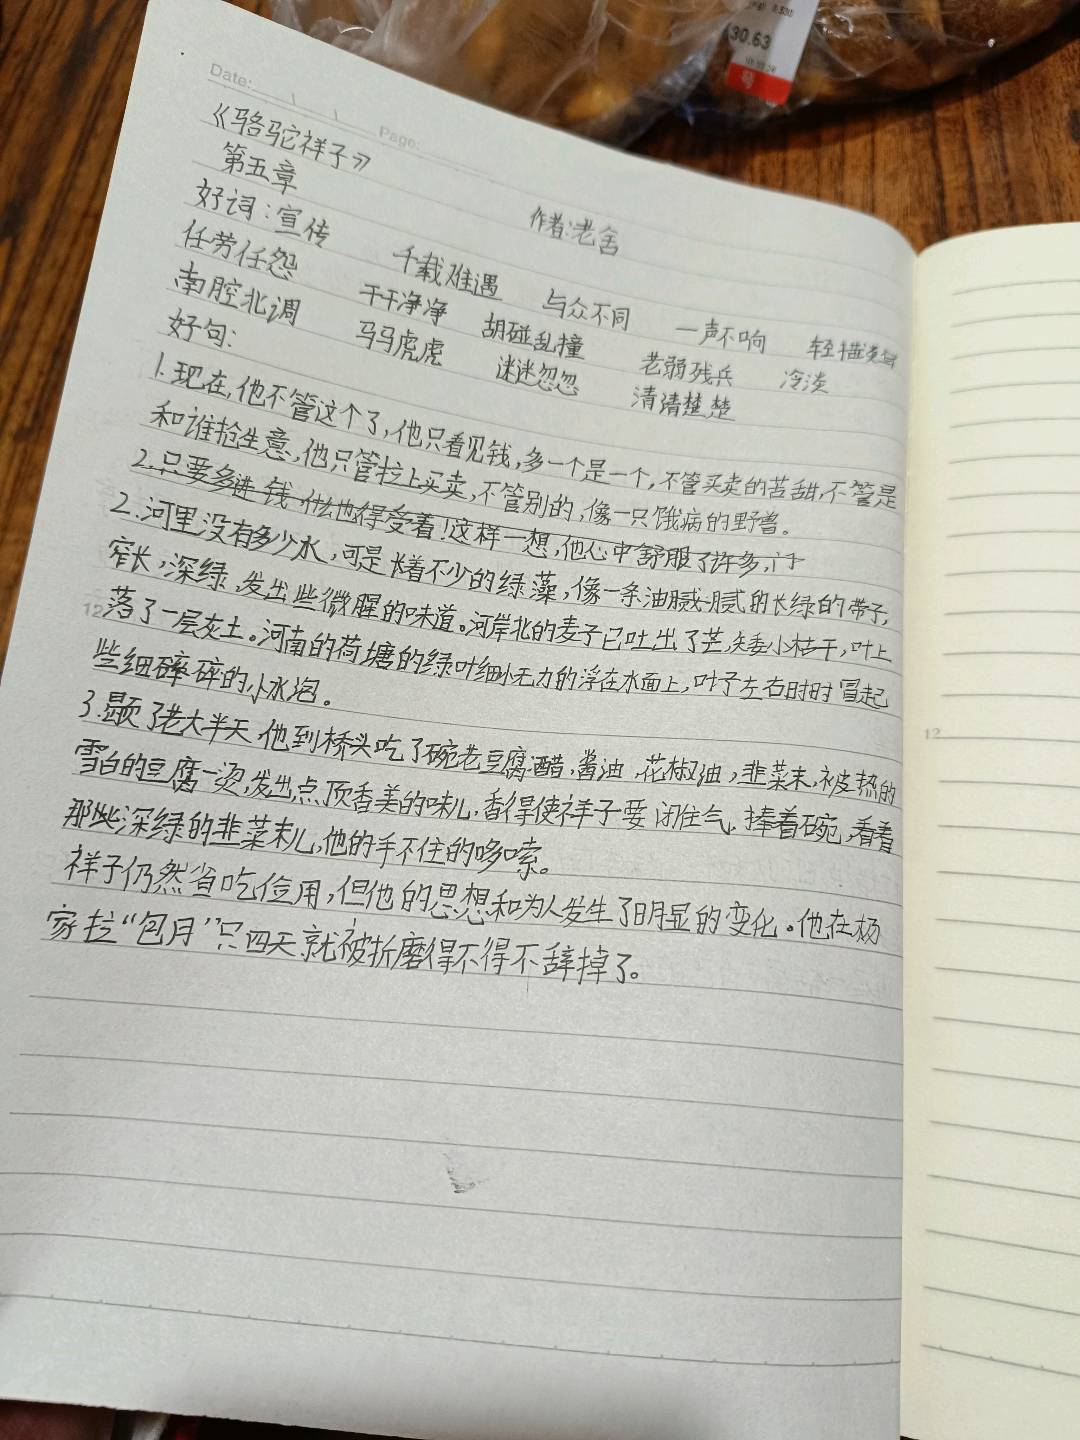 Date:
Page:
《骆驼祥子》
第五章
作者:老舍
好词:宣传 千载难遇 与众不同 一声不响 轻描淡写
任劳任怨 干干净净 胡碰乱撞 老弱残兵 冷淡
南腔北调 马马虎虎 迷迷忽忽 清清楚楚
好句:
1.现在,他不管这个了,他只看见钱,多一个是一个,不管买卖的苦甜,不管是
和谁抢生意,他只管拉上买卖,不管别的,像一只饿病的野兽。
2.只要多进钱,什么也得受着!这样一想,他心中舒服了许多,
2.河里没有多少水,可是长着不少的绿藻,像一条油腻腻的长绿的带子,
窄长,深绿,发出些微腥的味道。河岸北的麦子已吐出了芒,矮小枯干,叶上
落了一层灰土。河南的荷塘的绿叶细小无力的浮在水面上,叶子左右时时冒起
些细碎碎的小水泡。
3.歇了老大半天,他到桥头吃了碗老豆腐:醋,酱油,花椒油,韭菜末,被热的
雪白的豆腐一烫,发出点顶香美的味儿,香得使祥子要闭住气,捧着碗,看着
那些深绿的韭菜末儿,他的手不住的哆嗦。
祥子仍然省吃俭用,但他的思想和为人发生了明显的变化。他在杨
家拉“包月”只四天就被折磨得不得不辞掉了。
12
12
30.63